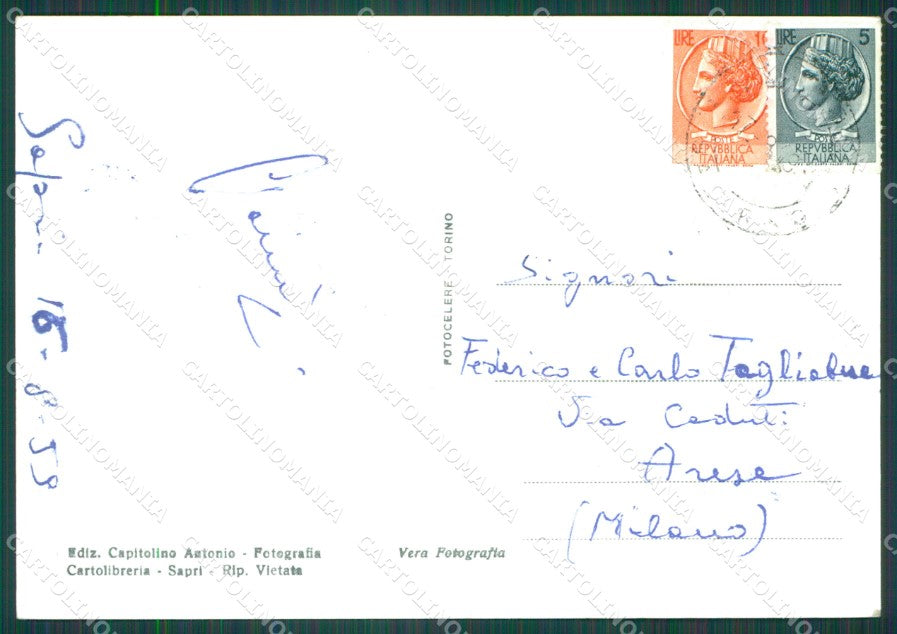 Sapri 16-8-59
FOTOCELERE TORINO
LIRE 10
POSTE
REPVBBLICA
ITALIANA
LIRE 5
POSTE
REPVBBLICA
ITALIANA
Signori
Federico e Carlo Tagliabue
Via Caduti
Arese
(Milano)
Ediz. Capitolino Antonio - Fotografia
Cartolibreria - Sapri - Rip. Vietata
Vera Fotografia
CARTOLINOMANIA